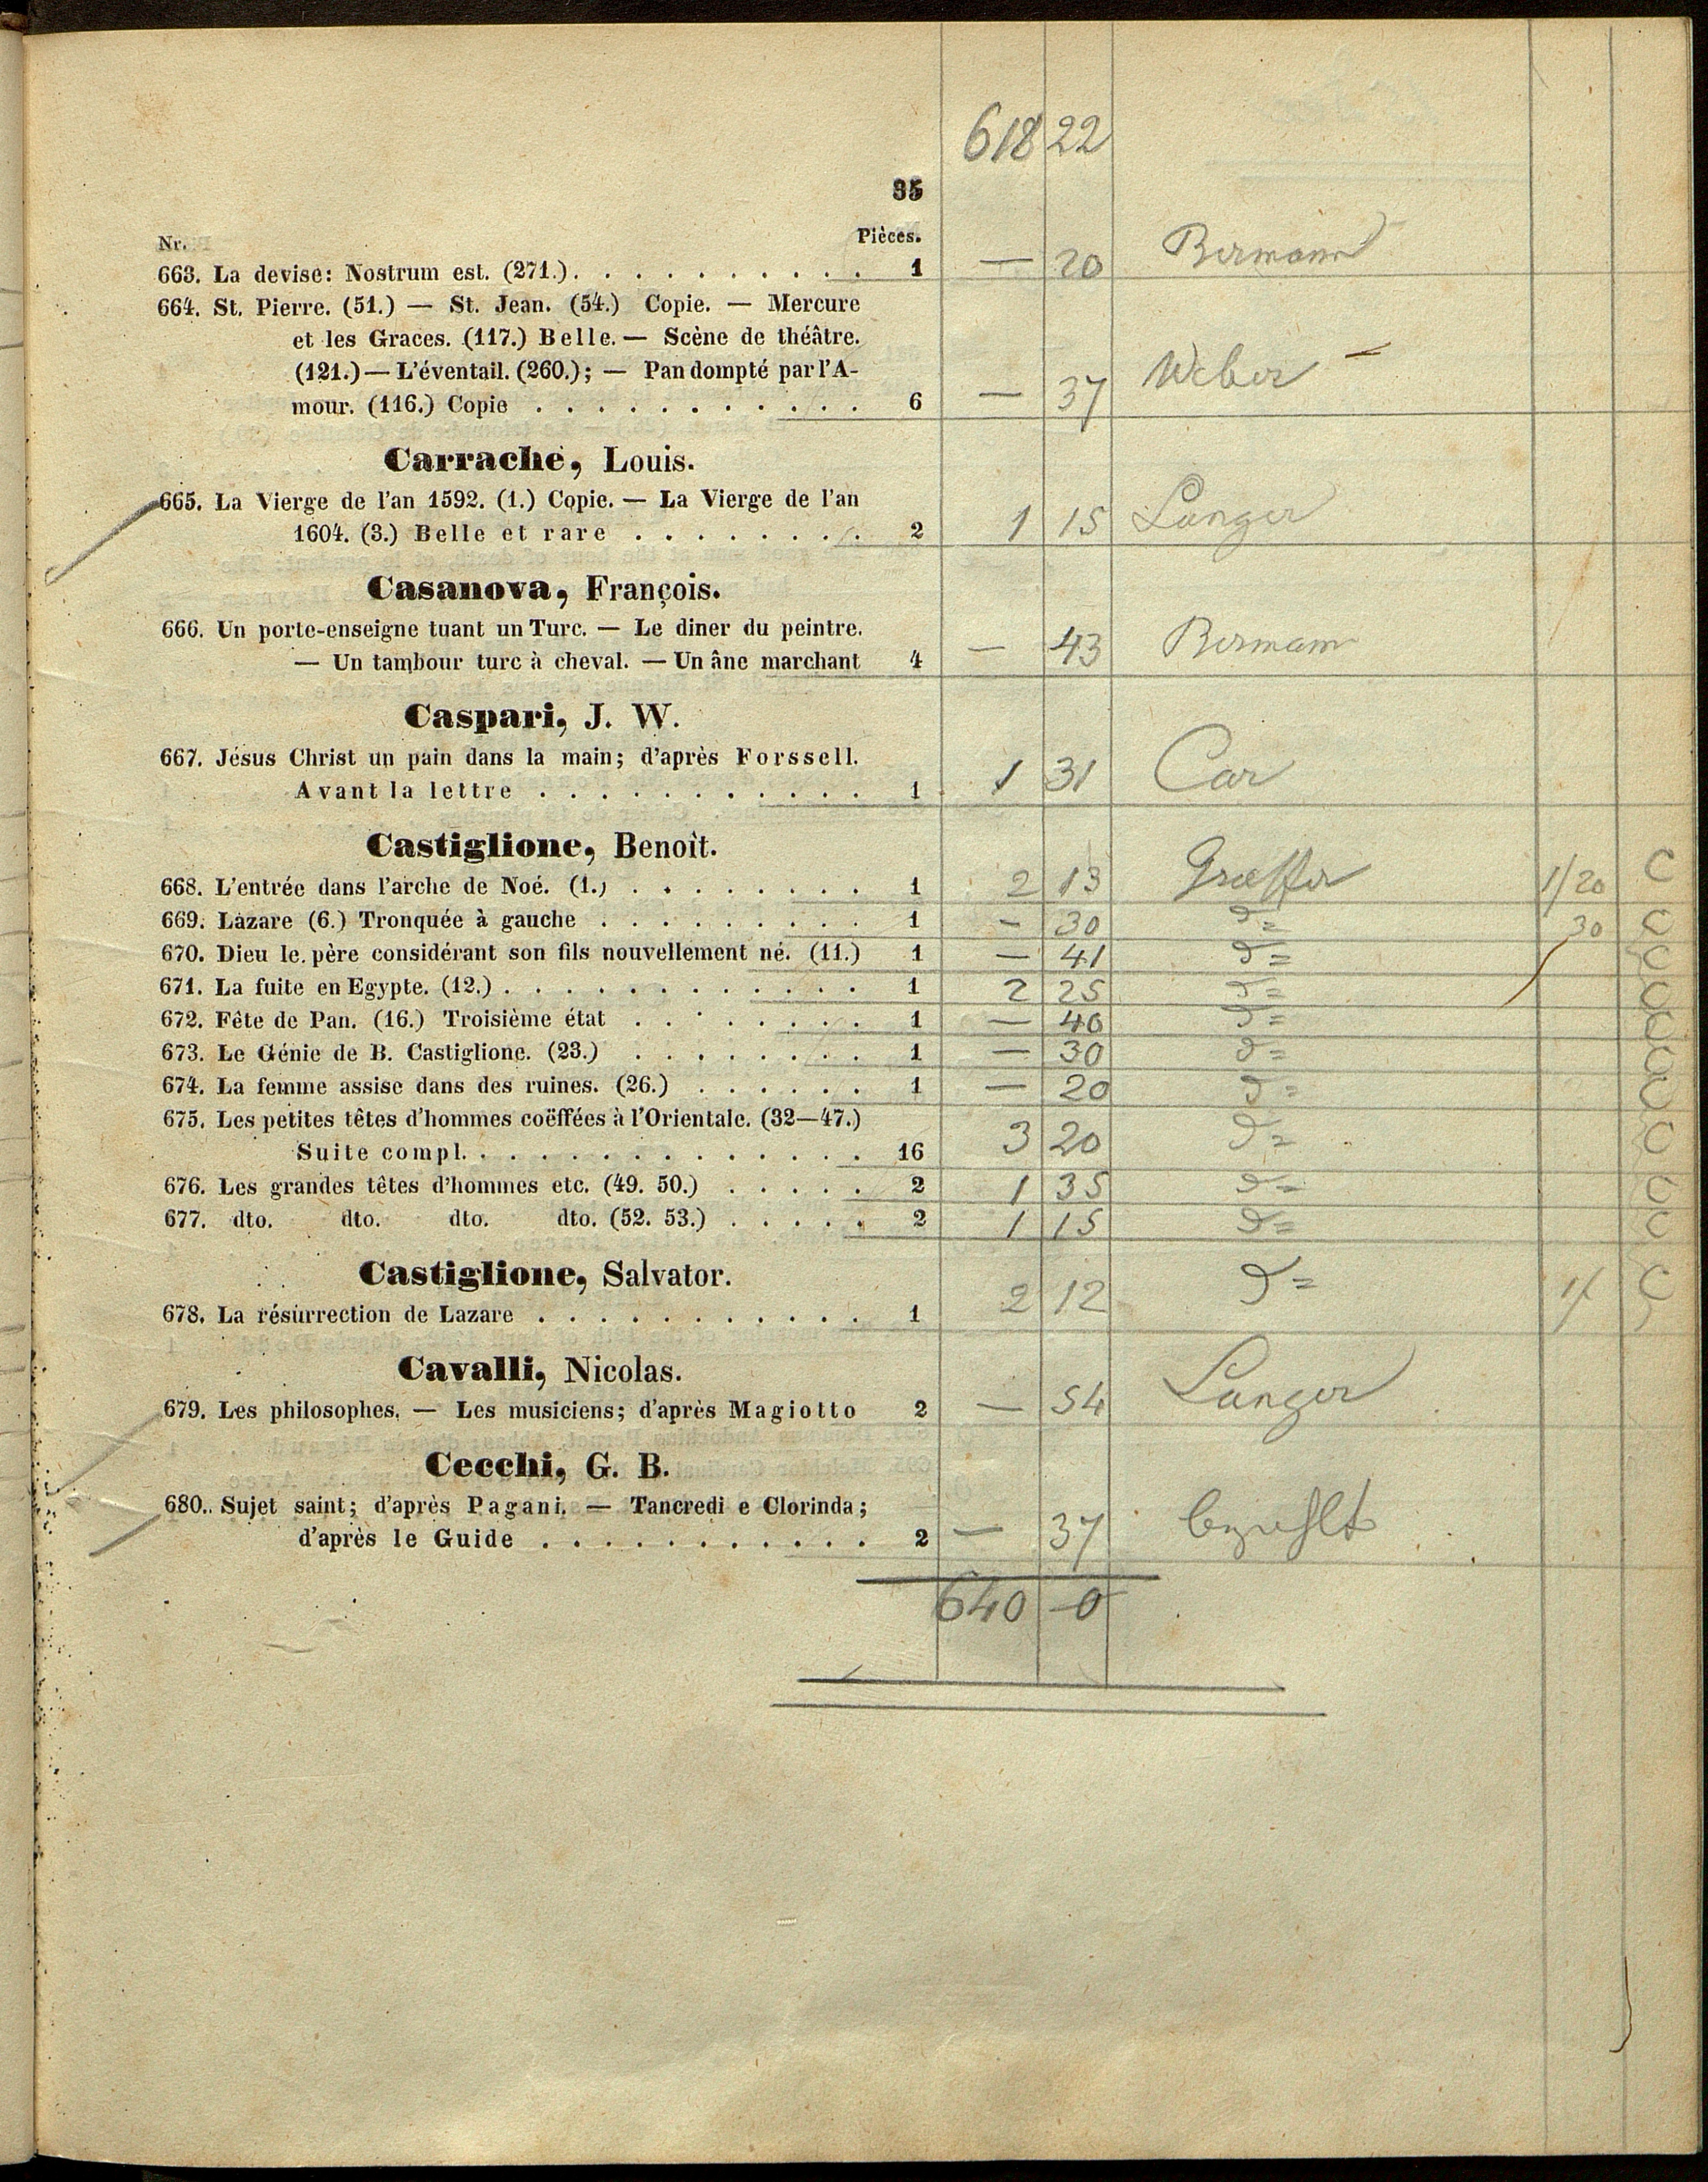 618 22
35
Nr. Pièces.
663. La devise: Nostrum est. (271.) . . . . . . . . . . 1 — 20 Bermann
664. St. Pierre. (51.) — St. Jean. (54.) Copie. — Mercure
et les Graces. (117.) Belle. — Scène de théâtre.
(121.) — L'éventail. (260.); — Pan dompté par l'A-
mour. (116.) Copie . . . . . . . . . . . . 6 — 37 Weber —
Carrache, Louis.
665. La Vierge de l'an 1592. (1.) Copie. — La Vierge de l'an
1604. (3.) Belle et rare . . . . . . . . 2 1 15 Langer
Casanova, François.
666. Un porte-enseigne tuant un Turc. — Le diner du peintre.
— Un tambour turc à cheval. — Un âne marchant 4 — 43 Bermann
Caspari, J. W.
667. Jésus Christ un pain dans la main; d'après Forssell.
Avant la lettre . . . . . . . . . . . . 1 1 31 Car
Castiglione, Benoit.
668. L'entrée dans l'arche de Noé. (1.) . . . . . . . . 1 2 13 Graeffer 1/20 C
669. Lazare (6.) Tronquée à gauche . . . . . . . . . 1 — 30 d= 30 C
670. Dieu le père considérant son fils nouvellement né. (11.) 1 — 41 d= C
671. La fuite en Egypte. (12.) . . . . . . . . . . . . 1 2 25 d= C
672. Fête de Pan. (16.) Troisième état . . . . . . . . 1 — 40 d= C
673. Le Génie de B. Castiglione. (23.) . . . . . . . . 1 — 30 d= C
674. La femme assise dans des ruines. (26.) . . . . . . 1 — 20 d= C
675. Les petites têtes d'hommes coëffées à l'Orientale. (32—47.)
Suite compl. . . . . . . . . . . . . . . 16 3 20 d= C
676. Les grandes têtes d'hommes etc. (49. 50.) . . . . . 2 1 35 d= C
677. dto. dto. dto. dto. (52. 53.) . . . . . 2 1 15 d= C
Castiglione, Salvator.
678. La résurrection de Lazare . . . . . . . . . . . . 1 2 12 d= 1/ C
Cavalli, Nicolas.
679. Les philosophes. — Les musiciens; d'après Magiotto 2 — 54 Langer
Cecchi, G. B.
680. Sujet saint; d'après Pagani. — Tancredi e Clorinda;
d'après le Guide . . . . . . . . . . . . 2 — 37 bezahlt
640 —0